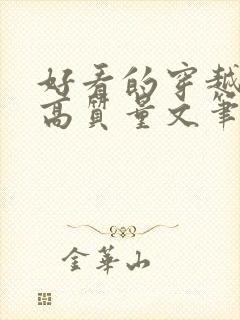 好看的穿越
高质量文笔
金华山